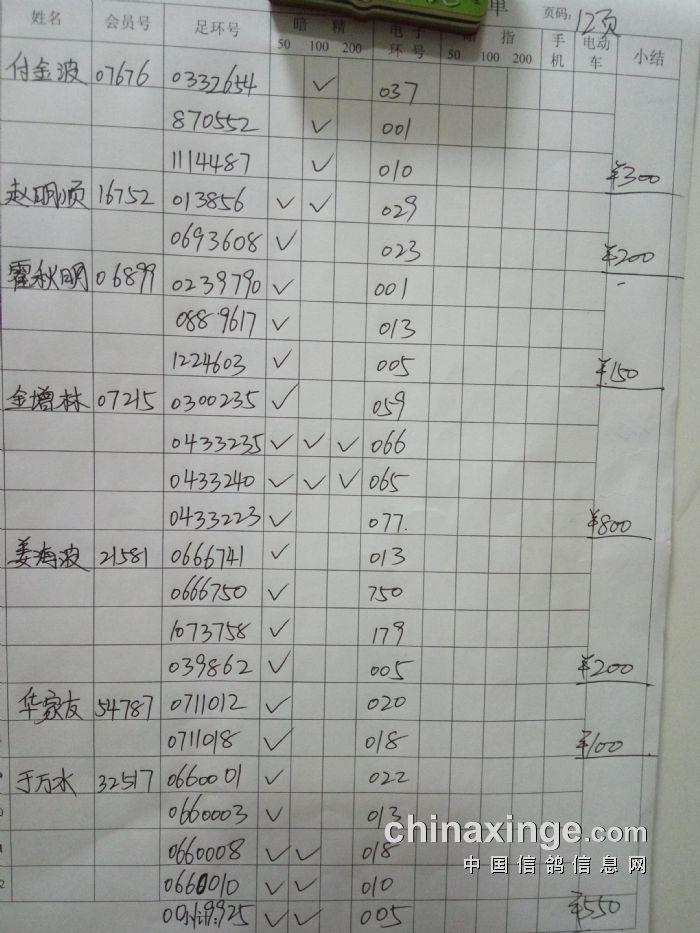 单 页码: 12页
姓名 会员号 足环号 暗 精 电子环号 指 手机 电动车 小结
50 100 200 50 100 200
付金波 07676 0332654 ✓ 037
870552 ✓ 001
1114487 ✓ 010 ¥300
赵明顺 16752 013856 ✓ ✓ 029
0693608 ✓ 023 ¥200
霍秋明 06899 0239790 ✓ 001
0889617 ✓ 013
1224603 ✓ 005 ¥150
金增林 07215 0300235 ✓ 059
0433235 ✓ ✓ ✓ 066
0433240 ✓ ✓ ✓ 065
0433223 ✓ 077. ¥800
姜海波 21581 0666741 ✓ 013
0666750 ✓ 750
1073758 ✓ 179
039862 ✓ 005 ¥200
华家友 54787 0711012 ✓ 020
0711018 ✓ 018 ¥100
于万水 32517 0660001 ✓ 022
0660003 ✓ 013
0660008 ✓ ✓ 018
0660010 ✓ ✓ 010
9925 ✓ ✓ 005 ¥550
chinaxinge.com
中国信鸽信息网